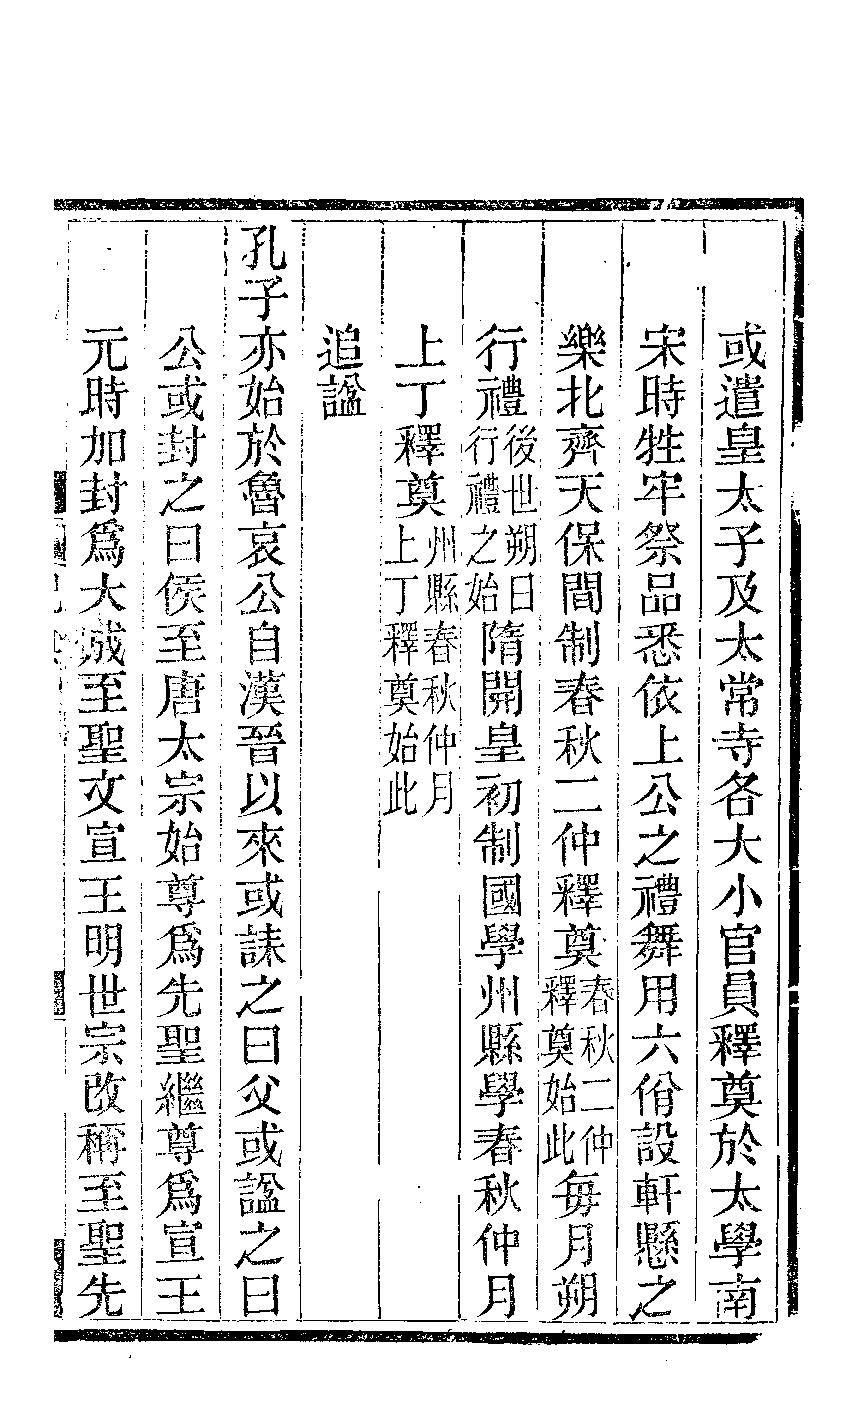 或遣皇太子及太常寺各大小官員釋奠於太學南
宋時牲牢祭品悉依上公之禮舞用六佾設軒懸之
樂北齊天保間制春秋二仲釋奠春秋二仲釋奠始此每月朔
行禮後世朔日行禮之始隋開皇初制國學州縣學春秋仲月
上丁釋奠州縣春秋仲月上丁釋奠始此
追諡
孔子亦始於魯哀公自漢晉以來或誄之曰父或諡之曰
公或封之曰侯至唐太宗始尊爲先聖繼尊爲宣王
元時加封爲大成至聖文宣王明世宗改稱至聖先